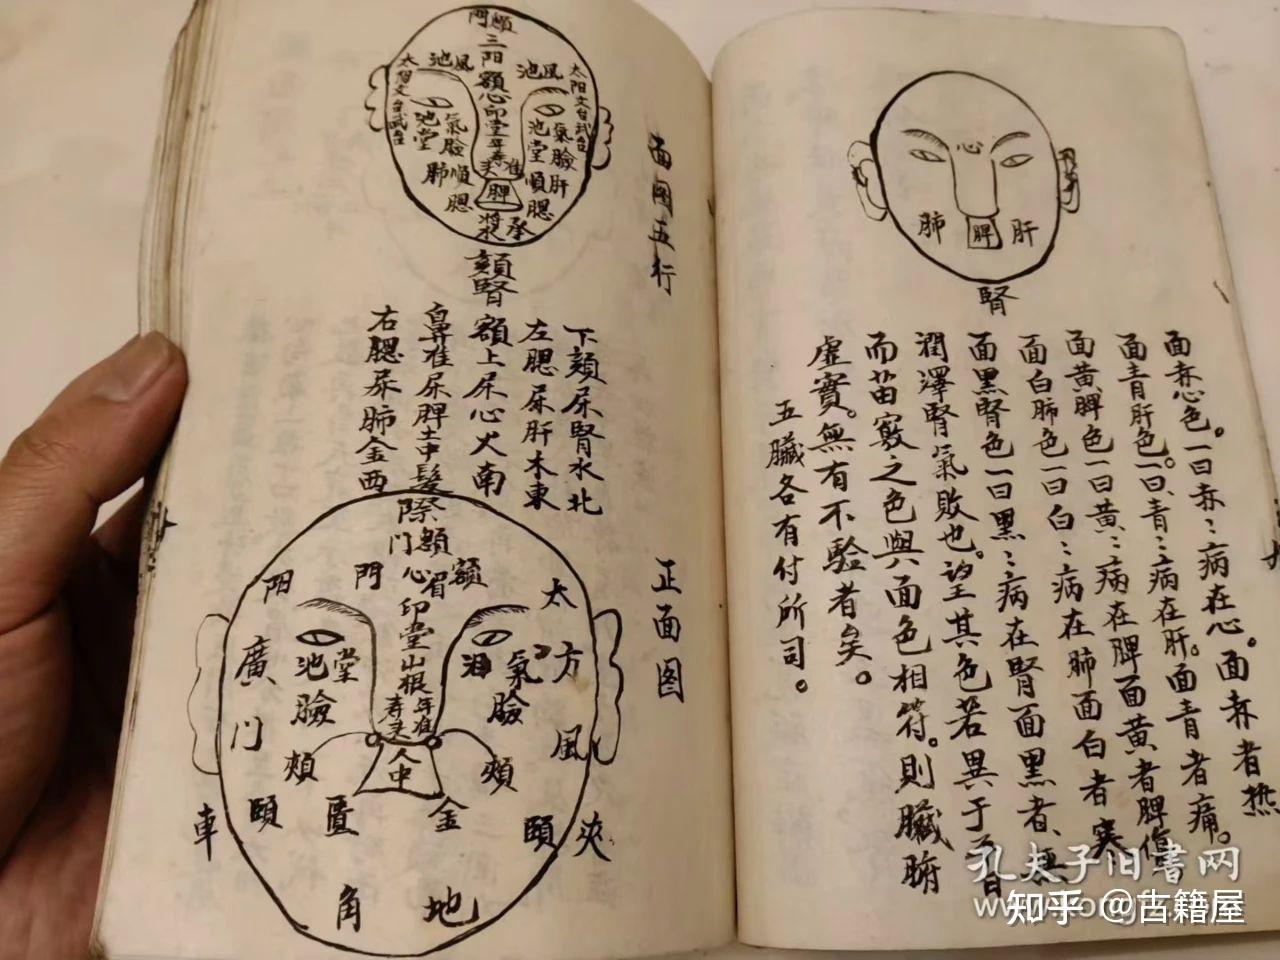 心
肺
脾
肝
腎
面赤心色。一曰赤〻病在心。面赤者热
面青肝色。一曰青〻病在肝。面青者痛。
面黄脾色一曰黄〻病在脾面黄者脾傷
面白肺色一曰白〻病在肺面白者寒
面黑腎色一曰黑〻病在腎面黑者
潤澤腎氣敗也。望其色若異于
而苗竅之色與面色相符。則臟腑
虚實。無有不驗者矣。
五臟各有付所司。
面圖五行
門
三阳
額心印堂年寿
風池
風池
太阳文台武台
太阳文台武台
氣池
臉堂
氣池
臉堂
肝
肺
順
腮
順
腮
准
脾
将
承
頦腎
下頦屎腎水北
左腮屎肝木東
額上屎心火南
鼻准屎脾土中
右腮屎肺金西
正面图
髮際
額門
心
眉
額
印堂山根年寿
准
人中
太
阳
門
方
廣
門
池
堂
氣
臉
臉
風
頰
頰
頤
頤
匱
金
車
夾
角
地
孔夫子旧书网
知乎 @古籍屋